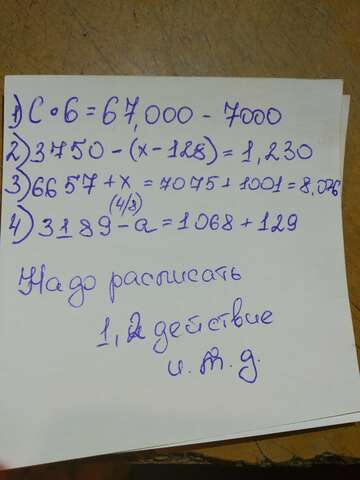 1) C • 6 = 67,000 - 7000
2) 3750 - (x - 128) = 1,230
3) 6657 + x = 7075 + 1001 = 8,076
(4/8)
4) 3189 - a = 1068 + 129
Надо расписать
1, 2 действие
и. т. д.